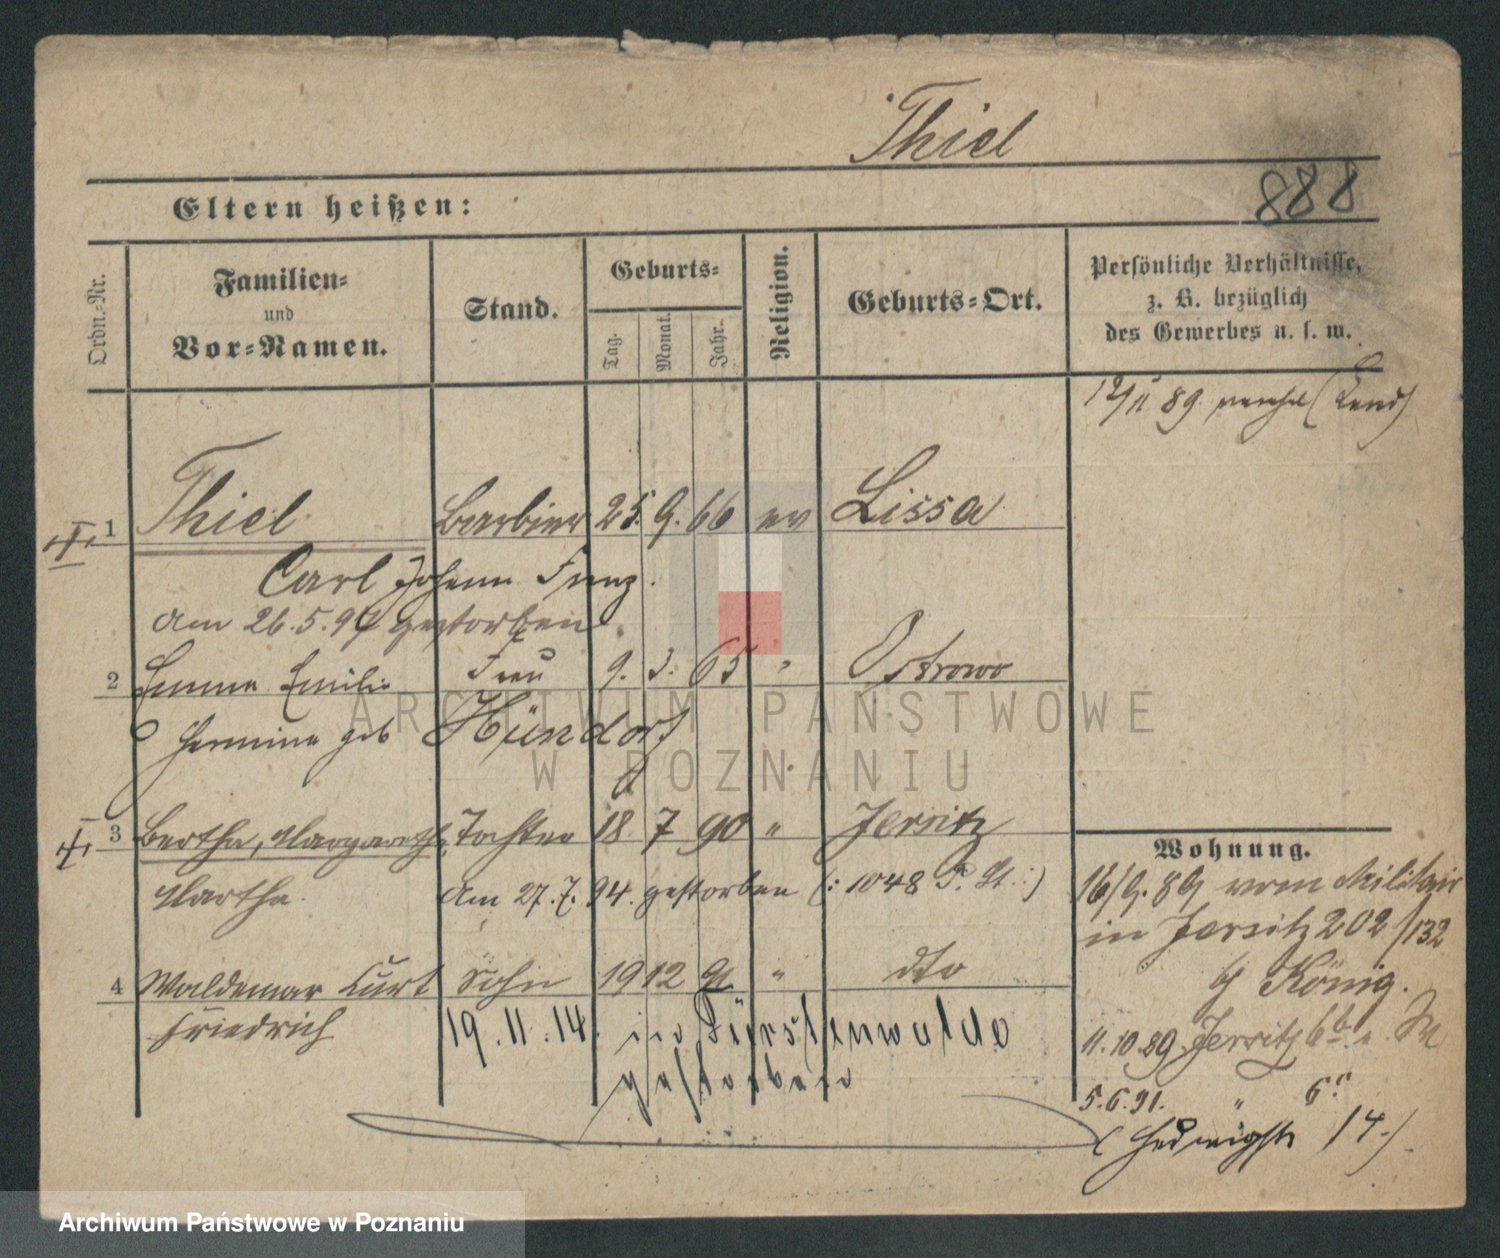 Thiel
888
Eltern heißen:
Ordn.-Nr.
Familien-
und
Vor-Namen.
Stand.
Geburts-
Tag.
Monat.
Jahr.
Religion.
Geburts-Ort.
Persönliche Verhältnisse,
z. B. bezüglich
des Gewerbes u. s. w.
12/11 89
1 Thiel Barbier 25. 9. 66 ev Lissa
Carl Johann Franz.
am 26.5.94 gestorben.
2 Emma Emilie Frau 9. 3. 65 " Ostrowo
Hermine geb Hündorf
3 Bertha, Margareth, Tochter 18 7 90 " Jersitz
Martha. am 27.7.94. gestorben (: 1048 P. St. :)
4 Waldemar Curt Sohn 19 12 91 " dto
Friedrich 19.11.14. in Fürstenwalde
gestorben
Wohnung.
16/9. 89 vom Militair
in Jersitz 202/132
b König.
11.10 89 Jersitz 6b.
5.6.91. " 6c.
(Hedwigstr 14.)
ARCHIWUM PAŃSTWOWE
W POZNANIU
Archiwum Państwowe w Poznaniu